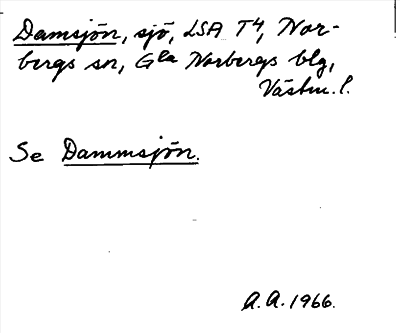 Damsjön, sjö, LSA T4, Nor-
bergs sn, Gla Norbergs blg,
Västm. l.
Se Dammsjön.
A.A. 1966.